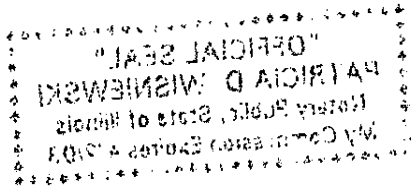 "OFFICIAL SEAL"
PATRICIA D. WISNIEWSKI
Notary Public, State of Illinois
My Commission Expires